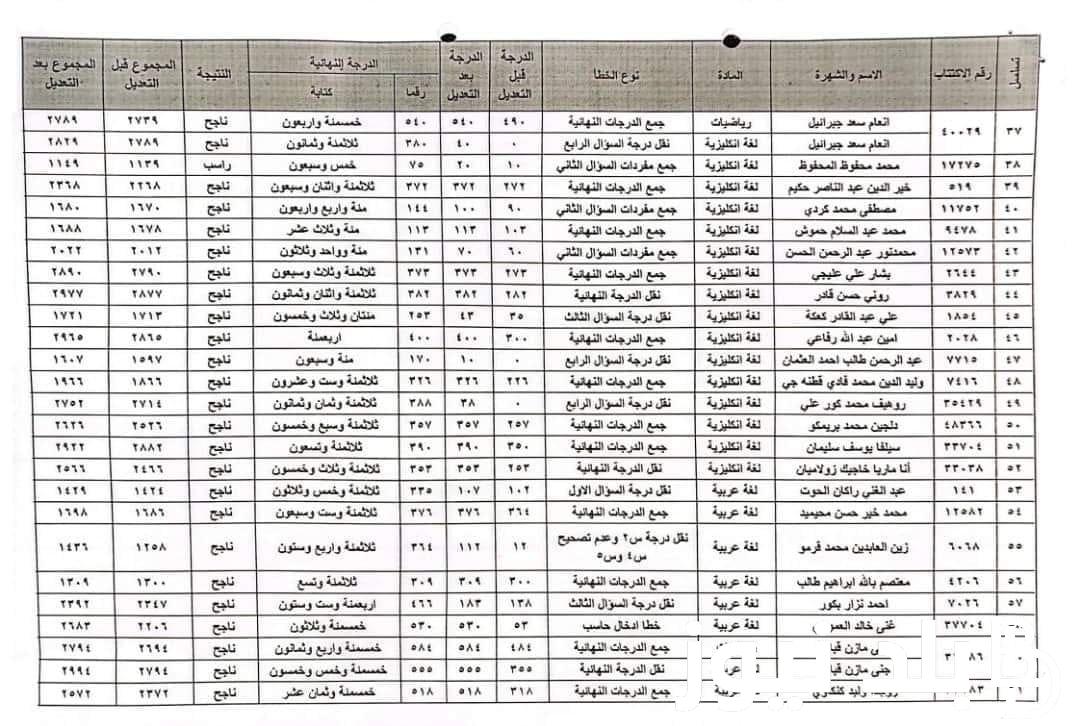 تسلسل رقم الاكتتاب الاسم والشهرة المادة نوع الخطأ الدرجة قبل التعديل الدرجة بعد التعديل الدرجة النهائية رقما كتابة النتيجة المجموع قبل التعديل المجموع بعد التعديل
٣٧ ٤٠٠٢٩ انعام سعد جبرائيل رياضيات جمع الدرجات النهائية ٤٩٠ ٥٤٠ ٥٤٠ خمسمئة واربعون ناجح ٢٧٣٩ ٢٧٨٩
انعام سعد جبرائيل لغة انكليزية نقل درجة السؤال الرابع ٠ ٤٠ ٣٨٠ ثلاثمئة وثمانون ناجح ٢٧٨٩ ٢٨٢٩
٣٨ ١٧٢٧٥ محمد محفوظ المحفوظ لغة انكليزية جمع مفردات السؤال الثاني ١٠ ٢٠ ٧٥ خمس وسبعون راسب ١١٣٩ ١١٤٩
٣٩ ٥١٩ خير الدين عبد الناصر حكيم لغة انكليزية جمع الدرجات النهائية ٢٧٢ ٣٧٢ ٣٧٢ ثلاثمئة واثنان وسبعون ناجح ٢٢٦٨ ٢٣٦٨
٤٠ ١١٧٥٢ مصطفى محمد كردي لغة انكليزية جمع مفردات السؤال الثاني ٩٠ ١٠٠ ١٤٤ مئة واربع واربعون ناجح ١٦٧٠ ١٦٨٠
٤١ ٩٤٧٨ محمد عبد السلام حموش لغة انكليزية جمع الدرجات النهائية ١٠٣ ١١٣ ١١٣ مئة وثلاث عشر ناجح ١٦٧٨ ١٦٨٨
٤٢ ١٢٥٧٣ محمدنور عبد الرحمن الحسن لغة انكليزية جمع مفردات السؤال الثاني ٦٠ ٧٠ ١٣١ مئة وواحد وثلاثون ناجح ٢٠١٢ ٢٠٢٢
٤٣ ٢٦٤٤ بشار علي عليجي لغة انكليزية جمع الدرجات النهائية ٢٧٣ ٣٧٣ ٣٧٣ ثلاثمئة وثلاث وسبعون ناجح ٢٧٩٠ ٢٨٩٠
٤٤ ٣٨٢٩ روني حسن قادر لغة انكليزية نقل الدرجة النهائية ٢٨٢ ٣٨٢ ٣٨٢ ثلاثمئة واثنان وثمانون ناجح ٢٨٧٧ ٢٩٧٧
٤٥ ١٨٥٤ علي عبد القادر كعكة لغة انكليزية نقل درجة السؤال الثالث ٣٥ ٤٣ ٢٥٣ مئتان وثلاث وخمسون ناجح ١٧١٣ ١٧٢١
٤٦ ٢٠٢٨ امين عبد الله رفاعي لغة انكليزية جمع الدرجات النهائية ٣٠٠ ٤٠٠ ٤٠٠ اربعمئة ناجح ٢٨٦٥ ٢٩٦٥
٤٧ ٧٧١٥ عبد الرحمن طالب احمد العثمان لغة انكليزية نقل درجة السؤال الرابع ٠ ١٠ ١٧٠ مئة وسبعون ناجح ١٥٩٧ ١٦٠٧
٤٨ ٧٤١٦ وليد الدين محمد فادي قطنه جي لغة انكليزية جمع الدرجات النهائية ٢٢٦ ٣٢٦ ٣٢٦ ثلاثمئة وست وعشرون ناجح ١٨٦٦ ١٩٦٦
٤٩ ٣٥٤٢٩ روهيف محمد كور علي لغة انكليزية نقل درجة السؤال الرابع ٠ ٣٨ ٣٨٨ ثلاثمئة وثمان وثمانون ناجح ٢٧١٤ ٢٧٥٢
٥٠ ٤٨٣٦٦ دلجين محمد بريمكو لغة انكليزية جمع الدرجات النهائية ٢٥٧ ٣٥٧ ٣٥٧ ثلاثمئة وسبع وخمسون ناجح ٢٥٢٦ ٢٦٢٦
٥١ ٣٣٧٠٤ سيلفا يوسف سليمان لغة انكليزية جمع الدرجات النهائية ٣٥٠ ٣٩٠ ٣٩٠ ثلاثمئة وتسعون ناجح ٢٨٨٢ ٢٩٢٢
٥٢ ٣٣٠٣٨ أنا ماريا خاجيك زولاميان لغة انكليزية نقل الدرجة النهائية ٢٥٣ ٣٥٣ ٣٥٣ ثلاثمئة وثلاث وخمسون ناجح ٢٤٦٦ ٢٥٦٦
٥٣ ١٤١ عبد الغني راكان الحوت لغة عربية نقل درجة السؤال الاول ١٠٢ ١٠٧ ٣٣٥ ثلاثمئة وخمس وثلاثون ناجح ١٤٢٤ ١٤٢٩
٥٤ ١٢٥٨٢ محمد خير حسن محيميد لغة عربية جمع الدرجات النهائية ٣٦٤ ٣٧٦ ٣٧٦ ثلاثمئة وست وسبعون ناجح ١٦٨٦ ١٦٩٨
٥٥ ٦٠٦٨ زين العابدين محمد فرمو لغة عربية نقل درجة س٢ وعدم تصحيح س٤ وس٥ ١٢ ١١٢ ٣٦٤ ثلاثمئة واربع وستون ناجح ١٢٥٨ ١٤٣٦
٥٦ ٤٢٠٦ معتصم بالله ابراهيم طالب لغة عربية جمع الدرجات النهائية ٣٠٠ ٣٠٩ ٣٠٩ ثلاثمئة وتسع ناجح ١٣٠٠ ١٣٠٩
٥٧ ٧٠٢٦ احمد نزار بكور لغة عربية نقل درجة السؤال الثالث ١٣٨ ١٨٣ ٤٦٦ اربعمئة وست وستون ناجح ٢٣٤٧ ٢٣٩٢
٣٧٧٠٤ غنى خالد لغة عربية خطا ادخال حاسب ٥٣ ٥٣٠ ٥٣٠ خمسمئة وثلاثون ناجح ٢٢٠٦ ٢٦٨٣
مازن لغة جمع الدرجات النهائية ٤٨٤ ٥٨٤ ٥٨٤ خمسمئة واربع وثمانون ناجح ٢٦٩٤ ٢٧٩٤
جنى مازن نقل الدرجة النهائية ٣٥٥ ٥٥٥ ٥٥٥ خمسمئة وخمس وخمسون ناجح ٢٧٩٤ ٢٩٩٤
وليد جمع الدرجات النهائية ٣١٨ ٥١٨ ٥١٨ خمسمئة وثمان عشر ناجح ٢٣٧٢ ٢٥٧٢